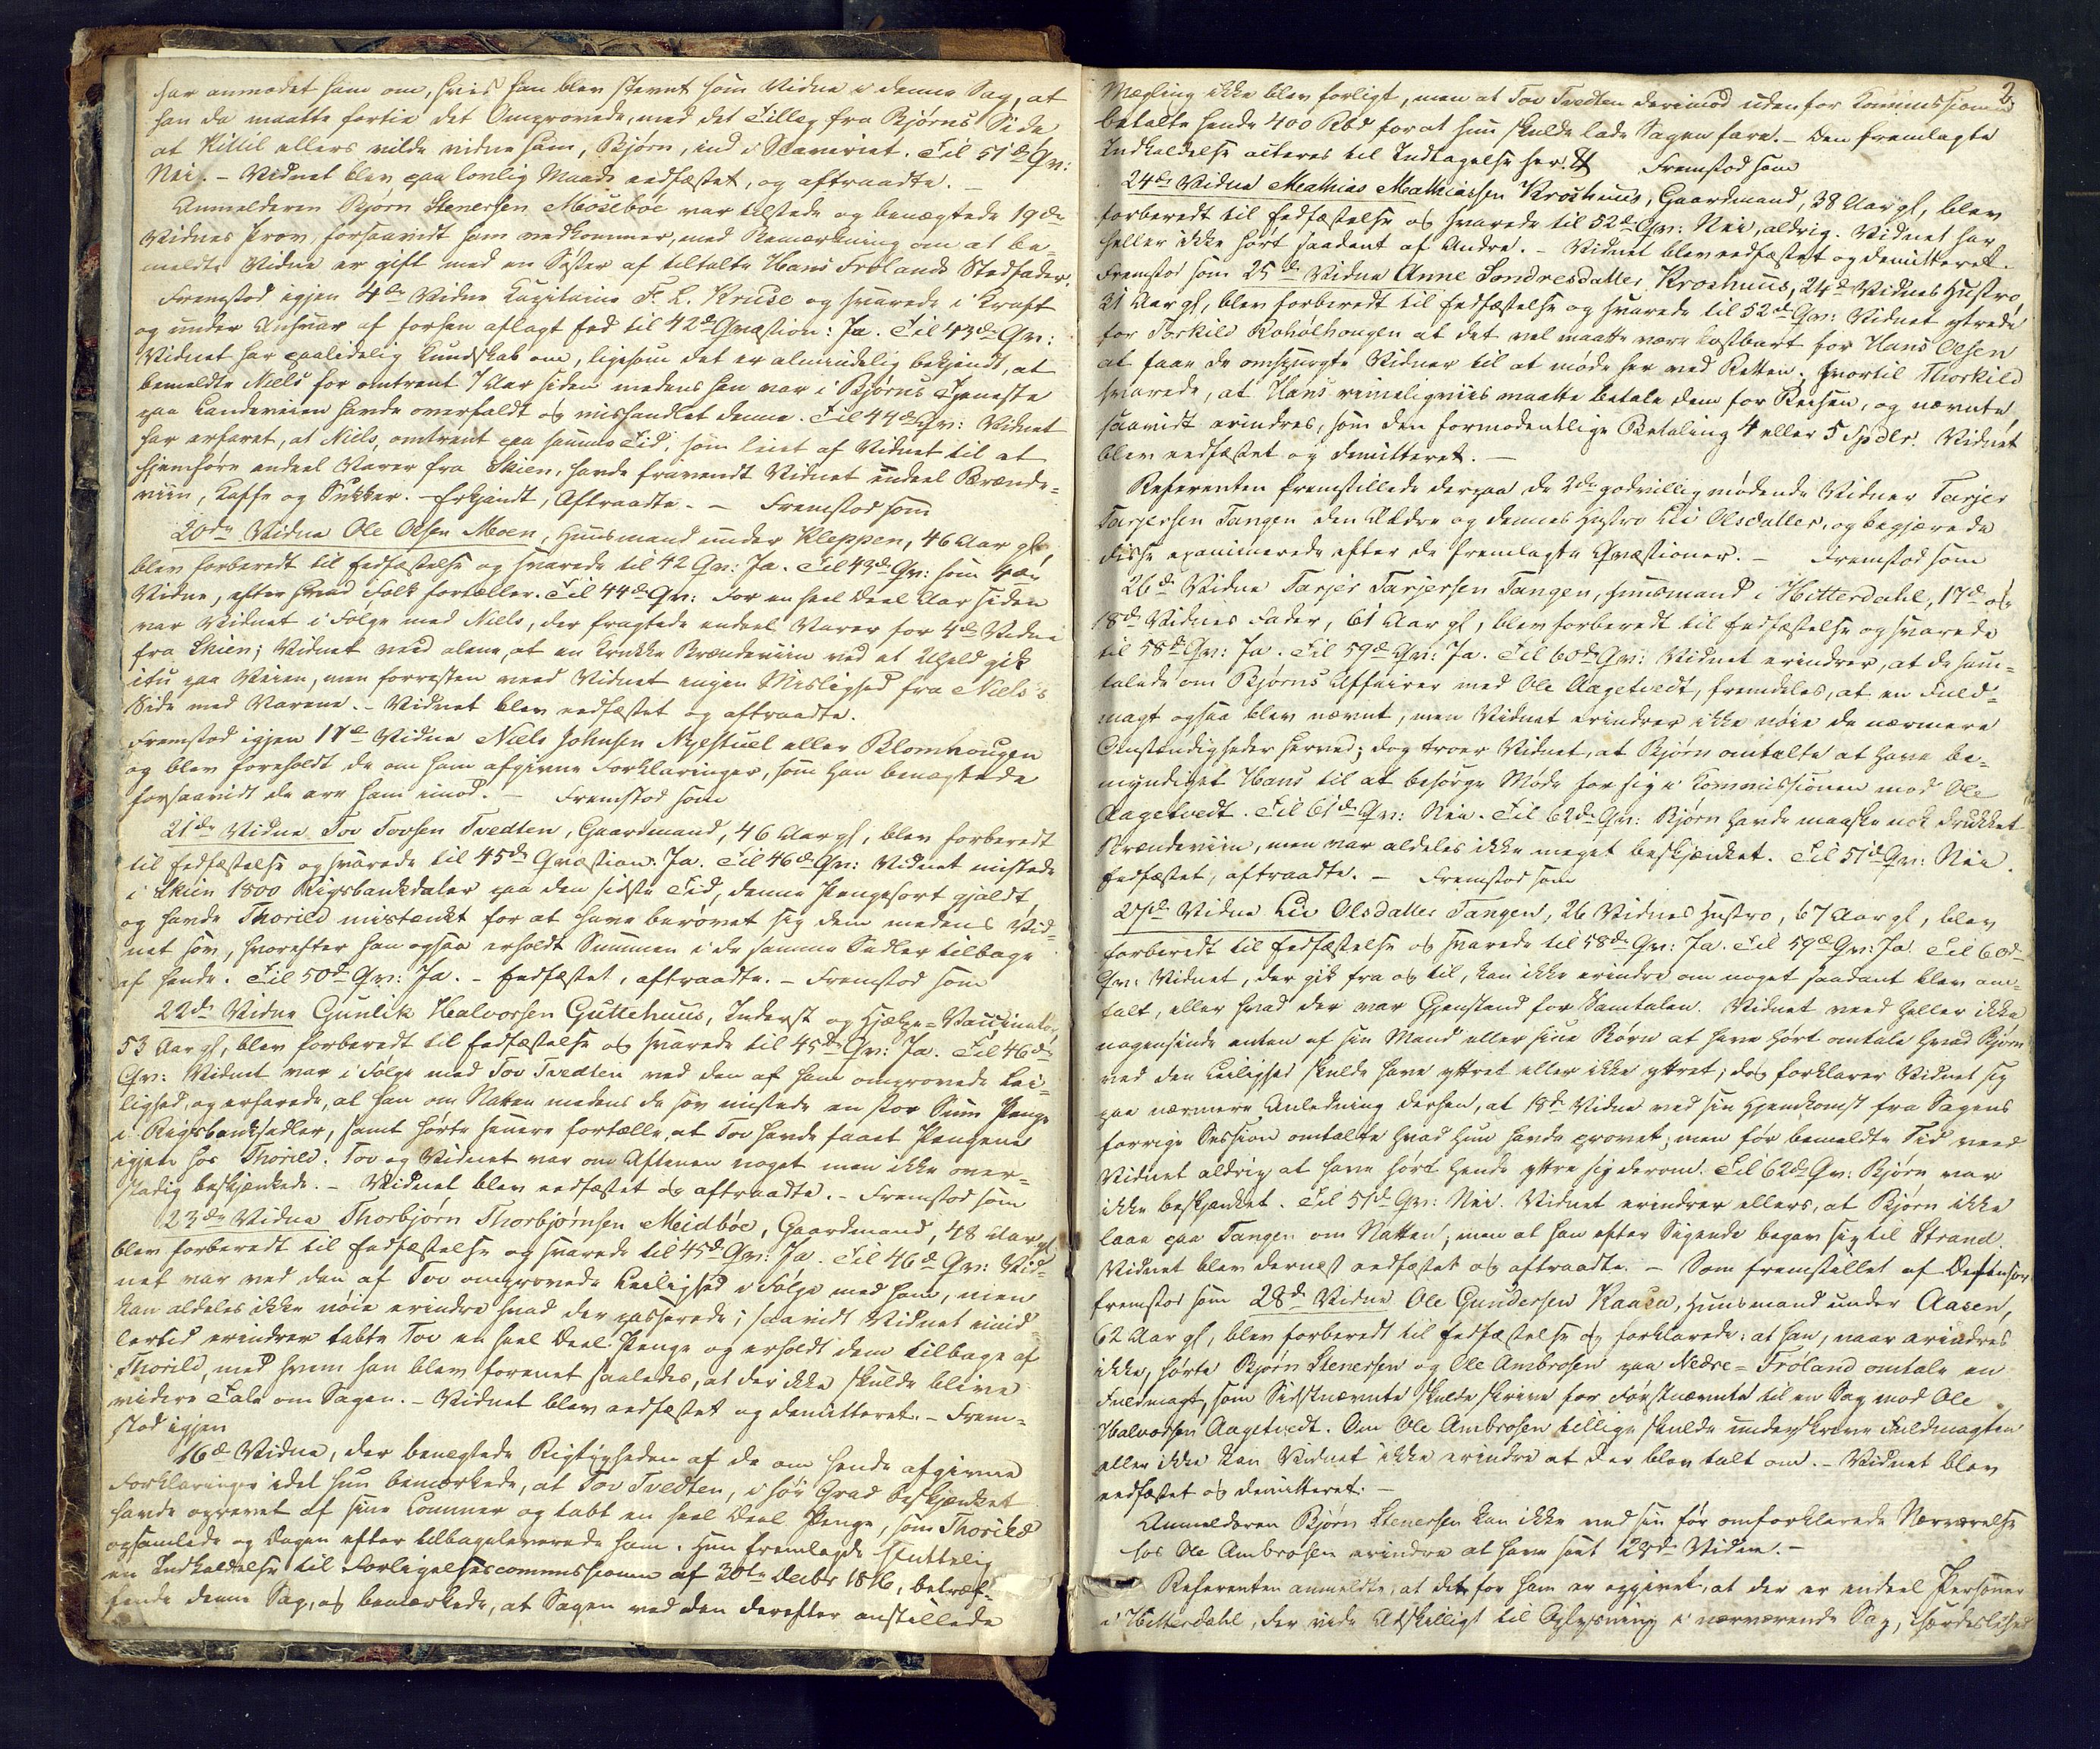 har anmodet ham om, hvis han blev stevnt som Vidne i denne Sag, at
han da maatte fortie det Omprovede, med det Tillæg fra Bjørns Side
at Kittil ellers vilde vidne ham, Bjørn, ind i Slaveriet. Til 51de Qv:
Nei. - Vidnet blev paa lovlig Maade eedfæstet, og aftraadte. -
Anmelderen Bjørn Stenersen Mosebøe var tilstede og benægtede 19de
Vidnes Prov, forsaavidt ham vedkommer, med Bemærkning om at be-
meldte Vidne er gift med en Søster af tiltalte Hans Frølands Stedfader.
Fremstod igjen 4de Vidne Capitaine F. L. Kruse og svarede i Kraft
og under Ansvar af forhen aflagt Eed til 42de Qvæstion: Ja. Til 43de Qv:
Vidnet har paalidelig Kundskab om, ligesom det er almindelig bekjendt, at
bemeldte Niels for omtrent 7 Aar siden medens han var i Bjørns Tjeneste
paa Landeveien havde overfaldt og mishandlet denne. Til 44de Qv: Vidnet
har erfaret, at Niels, omtrent paa samme Tid, som leiet af Vidnet til at
hjemføre endeel Varer fra Skien, havde fravendt Vidnet endeel Brænde-
viin, Kaffe og Sukker. - Erkjendt, Aftraadte. - Fremstod som
20de Vidne Ole Olsen Moen, Huusmand under Kleppen, 46 Aar gl.
blev forberedt til Eedfæstelse og svarede til 42 Qv: Ja. Til 43de Qv: som 4de
Vidne, efter hvad Folk fortæller. Til 44de Qv: For en heel Deel Aar siden
var Vidnet i Følge med Niels, der fragtede endeel Varer for 4de Vidne
fra Skien; Vidnet veed alene, at en Krukke Brændeviin ved et Uheld gik
itu paa Veien, men forresten veed Vidnet ingen Mislighed fra Niels's
Side med Varene. - Vidnet blev eedfæstet og aftraadte.
Fremstod igjen 17de Vidne Niels Johnsen Nyestuel eller Blomhougen
og blev foreholdt de om ham afgivne Forklaringer, som han benægtede
forsaavidt de ere ham imod. - Fremstod som
21de Vidne Tov Tovsen Tvedten, Gaardmand, 46 Aar gl, blev forberedt
til Eedfæstelse og svarede til 45de Qvæstion: Ja. Til 46de Qv: Vidnet mistede
i Skien 1800 Rigsbankdaler paa den sidste Tid, denne Pengesort gjaldt,
og havde Thorild mistænkt for at have berøvet sig dem medens Vid-
net sov, hvorefter han ogsaa erholdt Summen i de samme Sedler tilbage
af hende. Til 50de Qv: Ja. - Eedfæstet, aftraadte. - Fremstod som
22de Vidne Gunlik Halvorsen Guttehuus, Inderst og Hjælpe-Vaccinatør,
53 Aar gl, blev forberedt til Eedfæstelse og svarede til 45de Qv: Ja. Til 46de
Qv: Vidnet var i Følge med Tov Tvedten ved den af ham omprovede Lei-
lighed, og erfarede, at han om Natten medens de sov mistede en stor Sum Penge
i Rigsbanksedler, samt hørte senere fortælle, at Tov havde faaet Pengene
igjen hos Thorild. Tov og Vidnet var om Aftenen noget men ikke over-
stadig beskjænkede. - Vidnet blev eedfæstet og aftraadte. - Fremstod som
23de Vidne Thorbjørn Thorbjørnsen Meidbøe, Gaardmand, 48 Aar gl,
blev forberedt til Eedfæstelse og svarede til 45de Qv: Ja. Til 46de Qv: Vid-
net var ved den af Tov omprovede Leilighed i Følge med ham, men
kan aldeles ikke nøie erindre hvad der passerede; saavidt Vidnet imid-
lertid erindrer tabte Tov en heel Deel Penge og erholdt dem tilbage af
Thorild, med hvem han blev forenet saaledes, at der ikke skulde blive
videre Tale om Sagen. - Vidnet blev eedfæstet og demitteret. - Frem-
stod igjen
16de Vidne, der benegtede Rigtigheden af de om hende afgivne
Forklaringer idet hun bemærkede, at Tov Tvedten, i høi Grad beskjænket
havde oprevet af sine Lommer og tabt en heel Deel Penge, som Thorild
opsamlede og Dagen efter tilbageleverede ham. Hun fremlagde skuttelig
en Indkaldelse til Forligelsescommissionen af 30te Decbr 1816, betræf-
fende denne Sag, og bemærkede, at Sagen ved den derefter anstillede
2
Mægling ikke blev forligt, men at Tov Tvedten derimod udenfor Kommissionen
betalte hende 400 Rbd for at hun skulde lade Sagen fare. - Den fremlagte
Indkaldelse acteres til Indtagelse her. Fremstod som
24de Vidne Mathias Mathiassen Kroshuus, Gaardmand, 38 Aar gl, blev
forberedt til Eedfæstelse og svarede til 52de Qv: Nei, aldrig. Vidnet har
heller ikke hørt saadant af Andre. - Vidnet blev eedfæstet og demitteret.
Fremstod som 25de Vidne Anne Sondresdatter Kroshuus, 24de Vidnes Hustro,
31 Aar gl, blev forberedt til Eedfæstelse og svarede til 52de Qv: Vidnet ytrede
for Torkild Kobølhougen at det vel maatte være kostbart for Hans Olsen
at faae de omspurgte Vidner til at møde her ved Retten; hvortil Thorkild
svarede, at Hans rimeligviis maatte betale dem for Reisen, og nævnte,
saavidt erindres, som den formodentlige Betaling 4 eller 5 Spdlr. Vidnet
blev eedfæstet og demitteret. -
Referenten fremstillede derpaa de 2de godvillig mødende Vidner Tarjer
Tarjersen Tangen den Ældre og dennes Hustro Liv Olsdatter, og begjærede
disse examinerede efter de fremlagte Qvæstioner. - Fremstod som
26de Vidne Tarjer Tarjersen Tangen, Huusmand i Hitterdahl, 17de og
18de Vidnes Fader, 61 Aar gl, blev forberedt til Eedfæstelse og svarede
til 58de Qv: Ja. Til 59de Qv: Ja. Til 60de Qv: Vidnet erindrer, at de sam-
talede om Bjørns Affairer med Ole Aagetvedt, fremdeles, at en Fuld-
magt ogsaa blev nævnt, men Vidnet erindrer ikke nøie de nærmere
Omstændigheder herved; dog troer Vidnet, at Bjørn omtalte at have be-
myndiget Hans til at besørge Møde for sig i Kommissionen mod Ole
Aagetvedt. Til 61de Qv: Nei. Til 62de Qv: Bjørn havde maaske nok drukket
Brændeviin, men var aldeles ikke meget beskjænket. Til 51de Qv: Nei.
Eedfæstet, aftraadte. - Fremstod som
27de Vidne Liv Olsdatter Tangen, 26 Vidnes Hustro, 67 Aar gl, blev
forberedt til Eedfæstelse og svarede til 58de Qv: Ja. Til 59de Qv: Ja. Til 60de
Qv: Vidnet, der gik fra og til, kan ikke erindre om noget saadant blev om-
talt, eller hvad der var Gjenstand for Samtalen. Vidnet veed heller ikke
nogensinde enten af sin Mand eller sine Børn at have hørt omtale hvad Bjørn
ved den Leilighed skulde have yttret eller ikke yttret; dog forklarer Vidnet sig
paa nærmere Anledning derhen, at 18de Vidne ved sin Hjemkomst fra Sagens
forrige Session omtalte hvad hun havde provet; men før bemeldte Tid veed
Vidnet aldrig at have hørt hende yttre sig derom. Til 62de Qv: Bjørn var
ikke beskjænket. Til 51de Qv: Nei. Vidnet erindrer ellers, at Bjørn ikke
laae paa Tangen om Natten; men at han efter Sigende begav sig til Strand.
Vidnet blev dernæst eedfæstet og aftraadte. - Som fremstillet af Defensor
fremstod som 28de Vidne Ole Gundersen Kaasa, Huusmand under Aasen,
62 Aar gl, blev forberedt til Eedfæstelse og forklarede: at han, naar erindres
ikke, hørte Bjørn Stenersen og Ole Ambrosen paa Nedre-Frøland omtale en
Fuldmagt, som Sidstnævnte skulde skrive for Førstnævnte til en Sag mod Ole
Halvorsen Aagetvedt. Om Ole Ambrosen tillige skulde underskrive Fuldmagten
eller ikke kan Vidnet ikke erindre at der blev talt om. - Vidnet blev
eedfæstet og demitteret. -
Anmelderen Bjørn Stenersen kan ikke ved sin før omforklarede Nærværelse
hos Ole Ambrosen erindre at have seet 28de Vidne. -
Referenten anmeldte, at det for ham er opgivet, at der er endeel Personer
i Hitterdahl, der vide Adskilligt til Oplysning i nærværende Sag, i særdeleshed